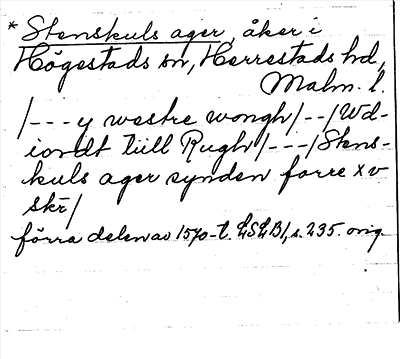 * Stenskuls ager, åker i
Högestads sn, Herrestads hd,
Malm. l.
/--- y westre wongh/--/Wd-
iordt till Rugh/---/Stens-
kuls ager synden forre xv
skr/
förra delen av 1570-t. LSLB1, s. 235. orig.